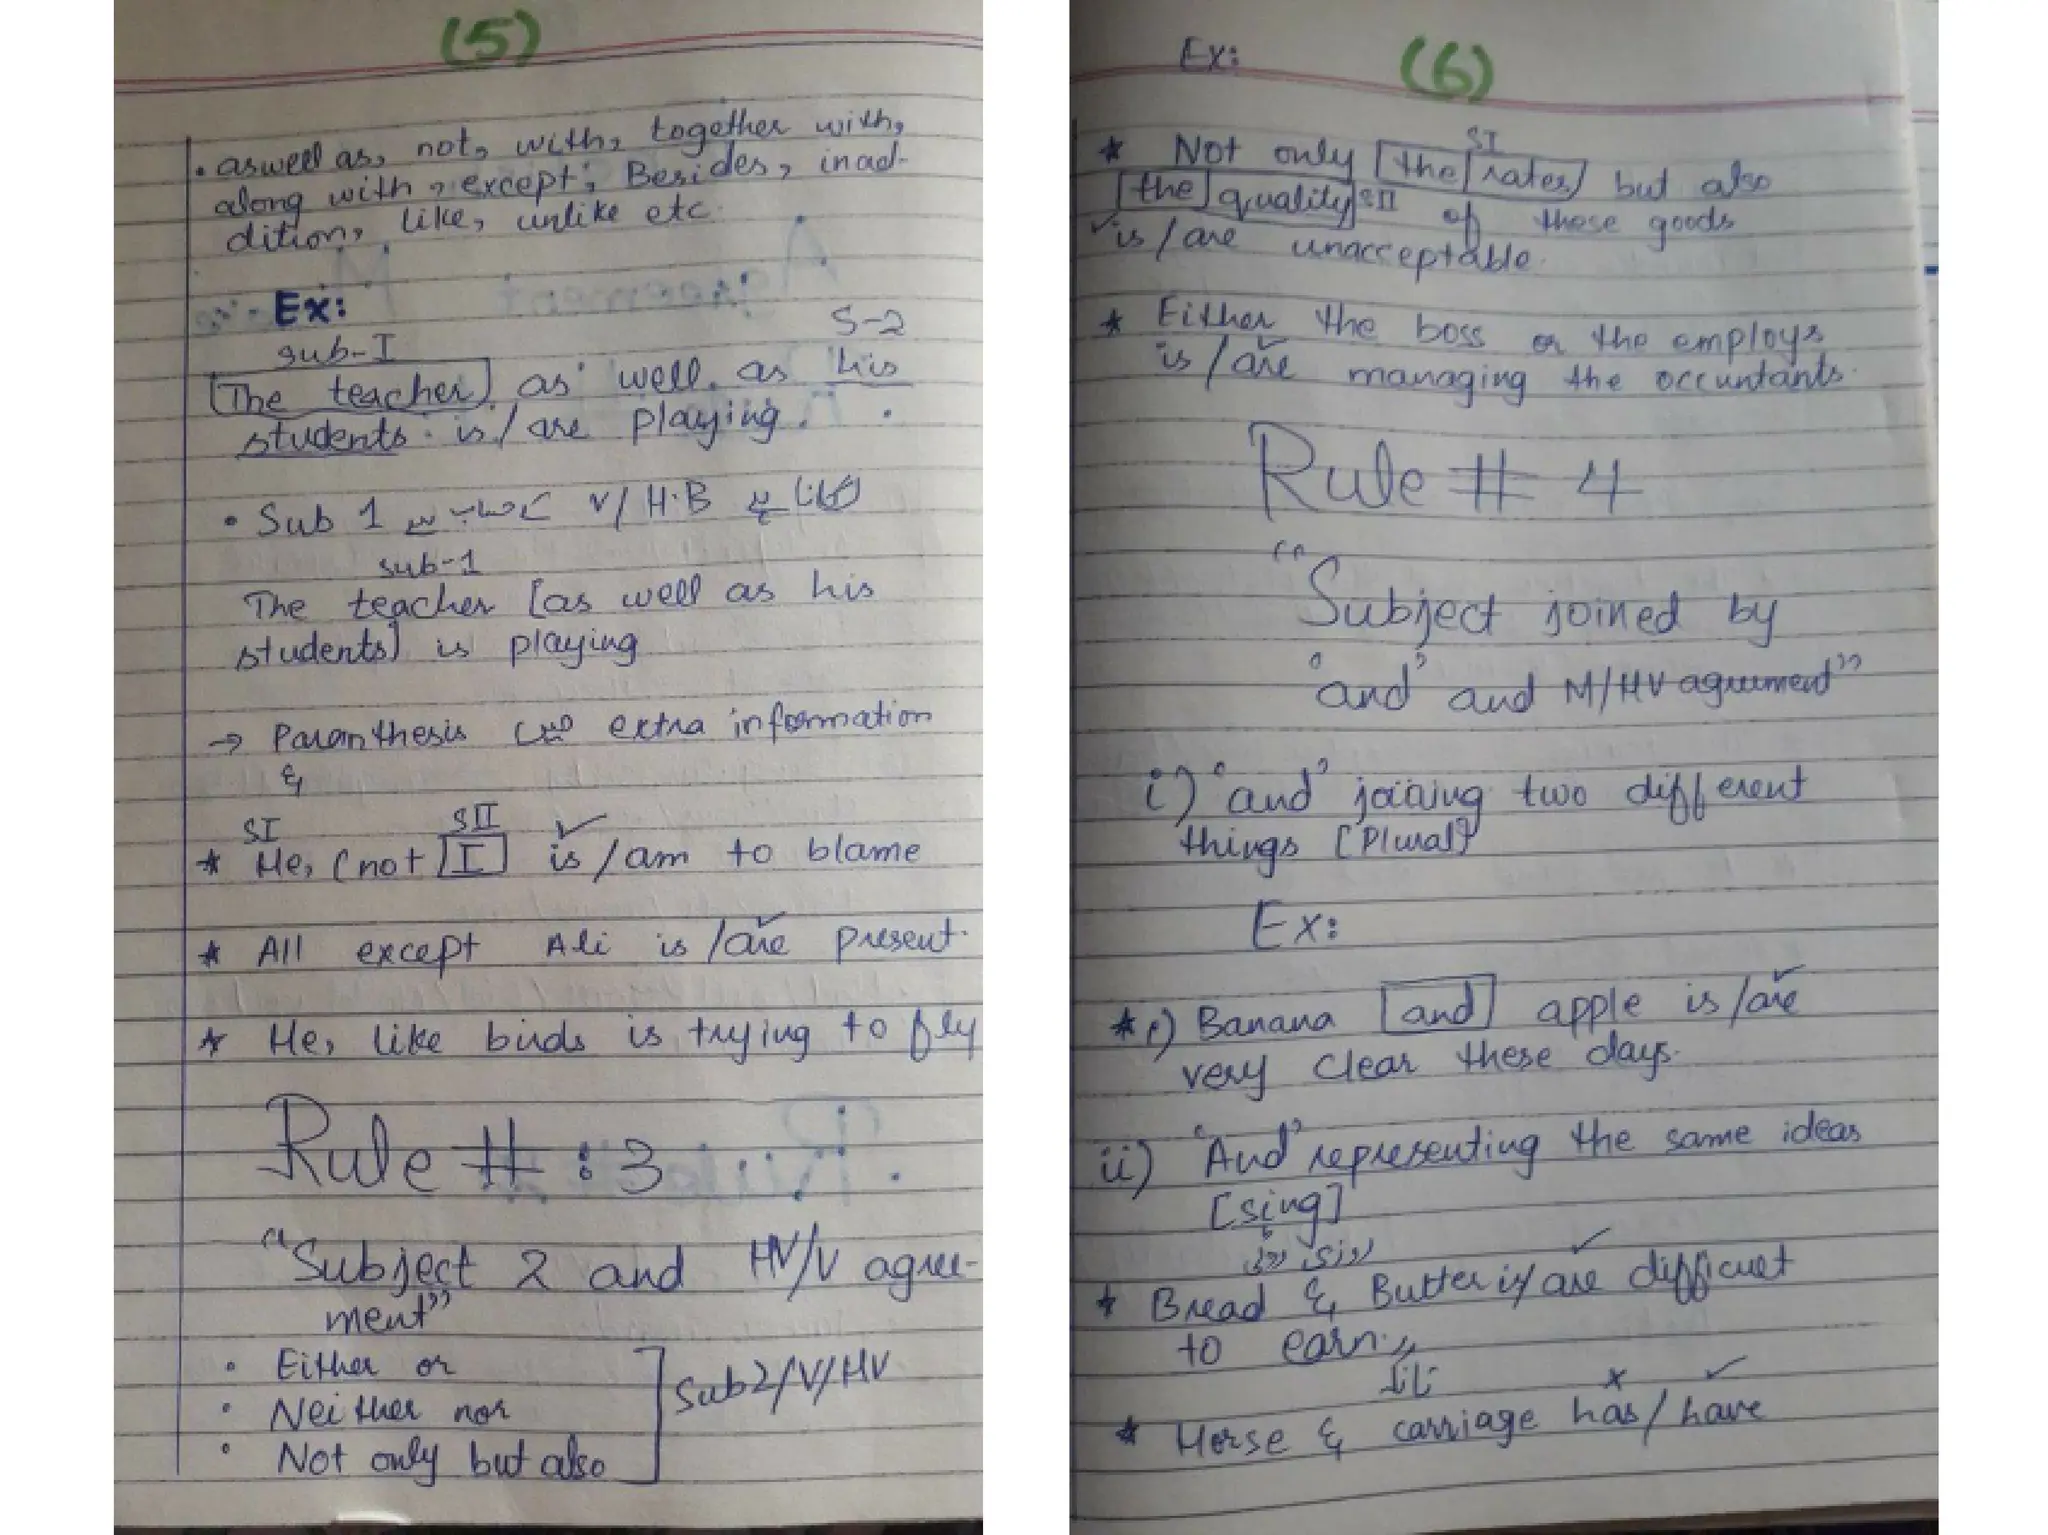 (5)
• aswell as, not, with, together with,
along with, except, Besides, inad-
dition, like, unlike etc.
Ex:
sub-I S-2
[The teacher] as well as his
students is/are playing.
• Sub 1 کے حساب سے V/H.B لگانا ہے
sub-1
The teacher [as well as his
students] is playing
→ Paranthesis میں extra information
&
SI SII ✓
* He, (not [I] is/am to blame
* All except Ali is/are present.
* He, like birds is trying to fly
Rule #:3
"Subject 2 and HV/V agree-
ment"
• Either or
• Neither nor
• Not only but also
Sub2/V/HV
Ex: (6)
SI
* Not only [the rates] but also
[the quality] SII of these goods
✓is/are unacceptable.
* Either the boss or the employs
is/are managing the occuntants.
Rule # 4
"Subject joined by
'and' and M/HV agreement"
i) 'and' joining two different
things [Plural]
Ex:
* i) Banana [and] apple is/are
very clear these days.
ii) 'And' representing the same ideas
[sing]
* Bread & Butter is/are difficuet
to earn.
× ✓
* Horse & carriage has/have